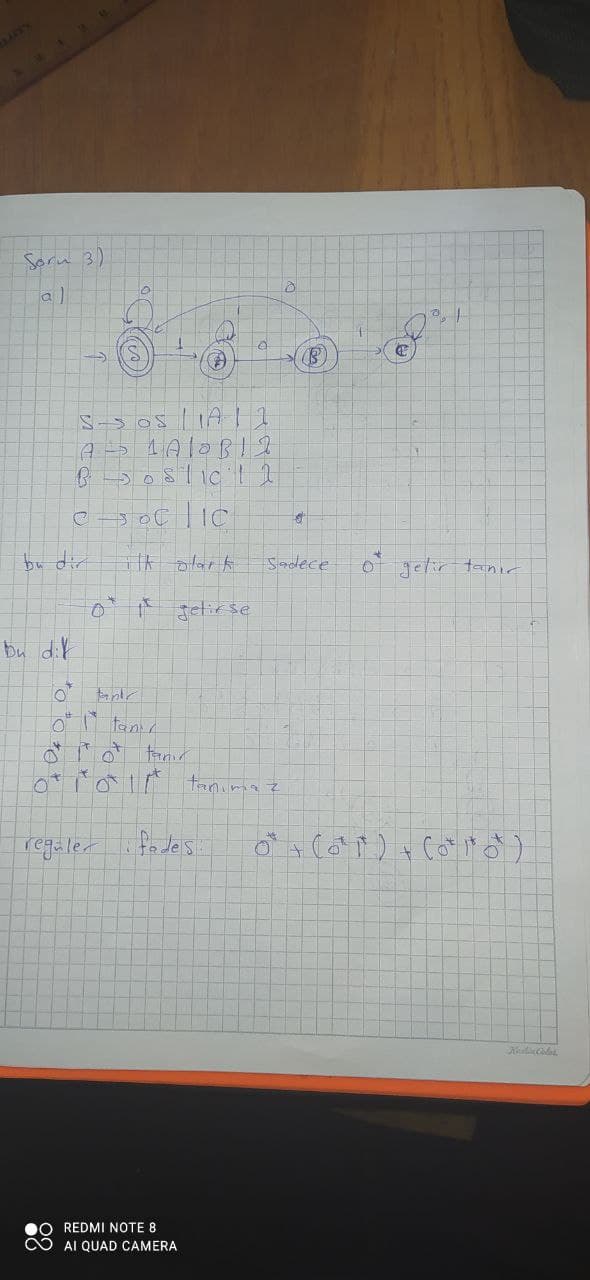 Soru 3)
a)
0 0
1 0, 1
S 1 A 0 B 1 C
S → 0S | 1A | λ
A → 1A | 0B | λ
B → 0S | 1C | λ
C → 0C | 1C
bu dir ilk olark sadece 0* getir tanır
0* 1* getirse
bu dil
0* tanır
0* 1* tanır
0* 1* 0* tanır
0* 1* 0* 1 1* tanımaz
regüler ifades: 0* + (0* 1*) + (0* 1* 0*)
KeskinColor
REDMI NOTE 8
AI QUAD CAMERA